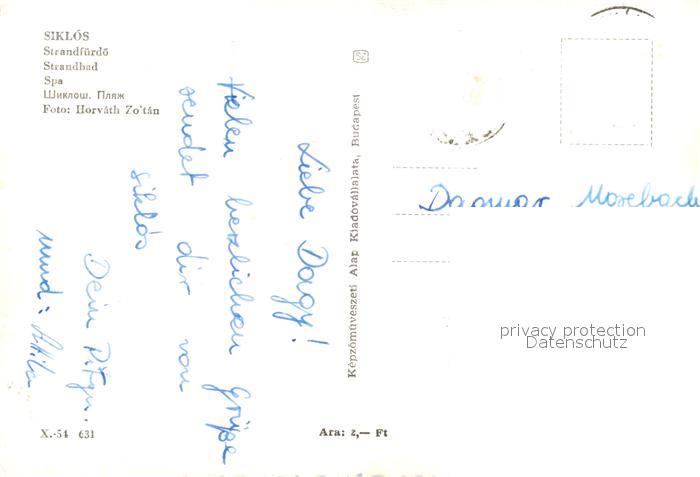 SIKLÓS
Strandfürdő
Strandbad
Spa
Шиклош. Пляж
Foto: Horváth Zo'tán
Liebe Dagy!
Vielen herzlichen Grüße
sendet dir von
Siklós
Dein
mund: Attila
Képzőművészeti Alap Kiadóvállalata, Budapest
Dagmar Mosebach
privacy protection
Datenschutz
X.-54 631
Ara: 2,— Ft